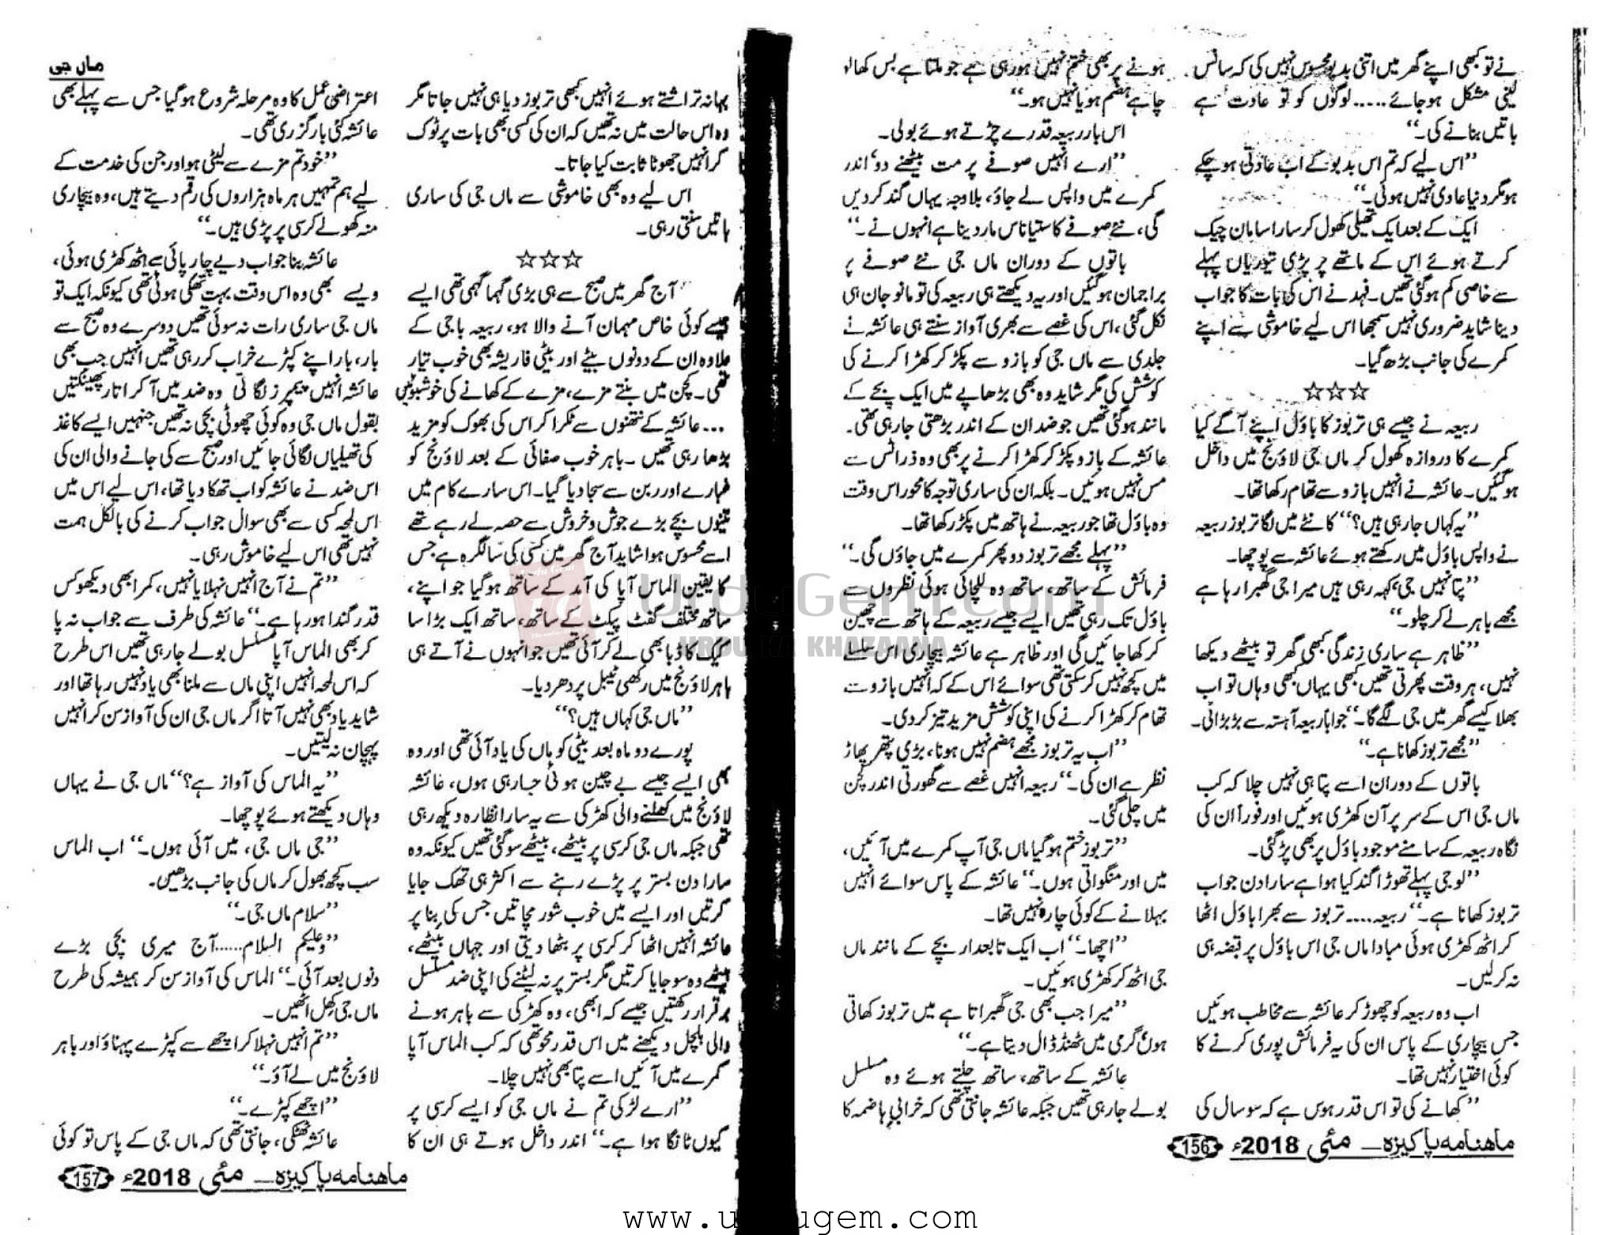 نے تو کبھی اپنے گھر میں اتنی بدبو محسوس نہیں کی کہ سانس
لینی مشکل ہو جائے..... لوگوں کو تو عادت ہے
باتیں بنانے کی۔“
”اس لیے کہ تم اس بدبو کے اب عادی ہو چکے
ہو مگر دنیا عادی نہیں ہوئی۔“
ایک کے بعد ایک تھیلی کھول کر سارا سامان چیک
کرتے ہوئے اس کے ماتھے پر پڑی تیوریاں پہلے
سے خاصی کم ہو گئی تھیں۔ فہد نے اس کی بات کا جواب
دینا شاید ضروری نہیں سمجھا اس لیے خاموشی سے اپنے
کمرے کی جانب بڑھ گیا۔
☆☆☆
ربیعہ نے جیسے ہی تربوز کا باؤل اپنے آگے کیا
کمرے کا دروازہ کھول کر ماں جی لاؤنج میں داخل
ہو گئیں۔ عائشہ نے انہیں بازو سے تھام رکھا تھا۔
”یہ کہاں جا رہی ہیں؟“ کانٹے میں لگا تربوز ربیعہ
نے واپس باؤل میں رکھتے ہوئے عائشہ سے پوچھا۔
”پتا نہیں جی، کہہ رہی ہیں میرا جی گھبرا رہا ہے
مجھے باہر لے کر چلو۔“
”ظاہر ہے ساری زندگی کبھی گھر تو بیٹھے دیکھا
نہیں، ہر وقت پھرتی تھیں کبھی یہاں کبھی وہاں تو اب
بھلا کیسے گھر میں جی لگے گا۔“ جواباً ربیعہ آہستہ سے بڑبڑائی۔
”مجھے تربوز کھانا ہے۔“
باتوں کے دوران اسے پتا ہی نہیں چلا کہ کب
ماں جی اس کے سر پر آن کھڑی ہوئیں اور فوراً ان کی
نگاہ ربیعہ کے سامنے موجود باؤل پر بھی پڑ گئی۔
”لو جی پہلے تھوڑا گند کیا ہوا ہے سارا دن جواب
تربوز کھانا ہے۔“ ربیعہ.... تربوز سے بھرا باؤل اٹھا
کر اٹھ کھڑی ہوئی مبادا ماں جی اس باؤل پر قبضہ ہی
نہ کر لیں۔
اب وہ ربیعہ کو چھوڑ کر عائشہ سے مخاطب ہوئیں
جس بیچاری کے پاس ان کی یہ فرمائش پوری کرنے کا
کوئی اختیار نہیں تھا۔
”کھانے کی تو اس قدر ہوس ہے کہ سو سال کی
ماهنامه پاکیزہ ــ مئی 2018ء 156
ہونے پر بھی ختم نہیں ہو رہی ہے جو ملتا ہے بس کھا لو
چاہے ہضم ہو یا نہیں ہو۔“
اس بار ربیعہ قدرے چڑتے ہوئے بولی۔
”ارے انہیں صوفے پر مت بیٹھنے دو، اندر
کمرے میں واپس لے جاؤ، بلاوجہ یہاں گند کر دیں
گی، نئے صوفے کا ستیاناس مار دینا ہے انہوں نے۔“
باتوں کے دوران ماں جی نئے صوفے پر
براجمان ہو گئیں اور یہ دیکھتے ہی ربیعہ کی تو مانو جان ہی
نکل گئی، اس کی غصے سے بھری آواز سنتے ہی عائشہ نے
جلدی سے ماں جی کو بازو سے پکڑ کر کھڑا کرنے کی
کوشش کی مگر شاید وہ بھی بڑھاپے میں ایک بچے کے
مانند ہو گئی تھیں جو ضد ان کے اندر بڑھتی جا رہی تھی۔
عائشہ کے بازو پکڑ کر کھڑا کرنے پر بھی وہ ذرا ٹس سے
مس نہیں ہوئیں۔ بلکہ ان کی ساری توجہ کا محور اس وقت
وہ باؤل تھا جو ربیعہ نے ہاتھ میں پکڑ رکھا تھا۔
”پہلے مجھے تربوز دو پھر کمرے میں جاؤں گی۔“
فرمائش کے ساتھ، ساتھ وہ للچائی ہوئی نظروں سے
باؤل تک رہی تھیں ایسے جیسے ربیعہ کے ہاتھ سے چھین
کر کھا جائیں گی اور ظاہر ہے عائشہ بیچاری اس سلسلے
میں کچھ نہیں کر سکتی تھی سوائے اس کے کہ انہیں بازو سے
تھام کر کھڑا کرنے کی اپنی کوشش مزید تیز کر دی۔
”اب یہ تربوز مجھے ہضم نہیں ہونا، بڑی پتھر پھاڑ
نظر ہے ان کی۔“ ربیعہ انہیں غصے سے گھورتی اندر کچن
میں چلی گئی۔
”تربوز ختم ہو گیا ماں جی آپ کمرے میں آئیں،
میں اور منگواتی ہوں۔“ عائشہ کے پاس سوائے انہیں
بہلانے کے کوئی چارہ نہیں تھا۔
”اچھا۔“ اب ایک تابعدار بچے کے مانند ماں
جی اٹھ کر کھڑی ہوئیں۔
”میرا جب بھی جی گھبراتا ہے میں تربوز کھاتی
ہوں گرمی میں ٹھنڈ ڈال دیتا ہے۔“
عائشہ کے ساتھ، ساتھ چلتے ہوئے وہ مسلسل
بولے جا رہی تھیں جبکہ عائشہ جانتی تھی کہ خرابیِ ہاضمہ کا
ماں جی
بہانہ تراشتے ہوئے انہیں کبھی تربوز دیا ہی نہیں جاتا مگر
وہ اس حالت میں نہ تھیں کہ ان کی کسی بھی بات پر ٹوک
کر انہیں جھوٹا ثابت کیا جاتا۔
اس لیے وہ بھی خاموشی سے ماں جی کی ساری
باتیں سنتی رہی۔
☆☆☆
آج گھر میں صبح سے ہی بڑی گہما گہمی تھی ایسے
جیسے کوئی خاص مہمان آنے والا ہو، ربیعہ باجی کے
علاوہ ان کے دونوں بیٹے اور بیٹی فاریشہ بھی خوب تیار
تھی۔ کچن میں بنتے مزے، مزے کے کھانے کی خوشبوئیں
... عائشہ کے نتھنوں سے ٹکرا کر اس کی بھوک کو مزید
بڑھا رہی تھیں۔ باہر خوب صفائی کے بعد لاؤنج کو
غبارے اور ربن سے سجا دیا گیا۔ اس سارے کام میں
تینوں بچے بڑے جوش و خروش سے حصہ لے رہے تھے
اسے محسوس ہوا شاید آج گھر میں کسی کی سالگرہ ہے جس
کا یقین الماس آپا کی آمد کے ساتھ ہو گیا جو اپنے،
ساتھ مختلف گفٹ پیکٹ کے ساتھ، ساتھ ایک بڑا سا
کیک کا ڈبا بھی لے کر آئی تھیں جو انہوں نے آتے ہی
باہر لاؤنج میں رکھی ٹیبل پر دھر دیا۔
”ماں جی کہاں ہیں؟“
پورے دو ماہ بعد بیٹی کو ماں کی یاد آئی تھی اور وہ
بھی ایسے جیسے بے چین ہوئی جا رہی ہوں، عائشہ
لاؤنج میں کھلنے والی کھڑکی سے یہ سارا نظارہ دیکھ رہی
تھی جبکہ ماں جی کرسی پر بیٹھے، بیٹھے سو گئی تھیں کیونکہ وہ
سارا دن بستر پر پڑے رہنے سے اکثر ہی تھک جایا
کرتیں اور ایسے میں خوب شور مچاتیں جس کی بنا پر
عائشہ انہیں اٹھا کر کرسی پر بٹھا دیتی اور جہاں بیٹھے،
بیٹھے وہ سو جایا کرتیں مگر بستر پر نہ لیٹنے کی اپنی ضد مسلسل
برقرار رکھتیں جیسے کہ ابھی، وہ کھڑکی سے باہر ہونے
والی ہلچل دیکھنے میں اس قدر محو تھی کہ کب الماس آپا
کمرے میں آئیں اسے پتا بھی نہیں چلا۔
”ارے لڑکی تم نے ماں جی کو ایسے کرسی پر
کیوں ٹانگا ہوا ہے۔“ اندر داخل ہوتے ہی ان کا
اعتراضی عمل کا وہ مرحلہ شروع ہو گیا جس سے پہلے بھی
عائشہ کئی بار گزری تھی۔
”خود تم مزے سے لیٹی ہو اور جن کی خدمت کے
لیے ہم تمہیں ہر ماہ ہزاروں کی رقم دیتے ہیں، وہ بیچاری
منہ کھولے کرسی پر پڑی ہیں۔“
عائشہ بنا جواب دیے چارپائی سے اٹھ کھڑی ہوئی،
ویسے بھی وہ اس وقت بہت تھکی ہوئی تھی کیونکہ ایک تو
ماں جی ساری رات نہ سوئی تھیں دوسرے وہ صبح سے
بار، بار اپنے کپڑے خراب کر رہی تھیں انہیں جب بھی
عائشہ انہیں پیمپرز لگاتی وہ ضد میں آ کر اتار پھینکتیں
بقول ماں جی وہ کوئی چھوٹی بچی نہ تھیں جنہیں ایسے کاغذ
کی تھیلیاں لگائی جائیں اور صبح سے کی جانے والی ان کی
اس ضد نے عائشہ کو اب تھکا دیا تھا، اس لیے اس میں
اس لمحہ کسی سے بھی سوال جواب کرنے کی بالکل ہمت
نہیں تھی اس لیے خاموش رہی۔
”تم نے آج انہیں نہلایا نہیں، کمرا بھی دیکھو کس
قدر گندا ہو رہا ہے۔“ عائشہ کی طرف سے جواب نہ پا
کر بھی الماس آپا مسلسل بولے جا رہی تھیں اس طرح
کہ اس لمحہ انہیں اپنی ماں سے ملنا بھی یاد نہیں رہا تھا اور
شاید یاد بھی نہیں آتا اگر ماں جی ان کی آواز سن کر انہیں
پہچان نہ لیتیں۔
”یہ الماس کی آواز ہے؟“ ماں جی نے یہاں
وہاں دیکھتے ہوئے پوچھا۔
”جی ماں جی، میں آئی ہوں۔“ اب الماس
سب کچھ بھول کر ماں کی جانب بڑھیں۔
”سلام ماں جی۔“
”وعلیکم السلام..... آج میری بچی بڑے
دنوں بعد آئی۔“ الماس کی آواز سن کر ہمیشہ کی طرح
ماں جی کھل اٹھیں۔
”تم انہیں نہلا کر اچھے سے کپڑے پہناؤ اور باہر
لاؤنج میں لے آؤ۔“
”اچھے کپڑے۔“
عائشہ ٹھٹکی، جانتی تھی کہ ماں جی کے پاس تو کوئی
ماهنامه پاکیزہ ــ مئی 2018ء 157
UrduGem.com
URDU KA KHAZAANA
www.urdugem.com